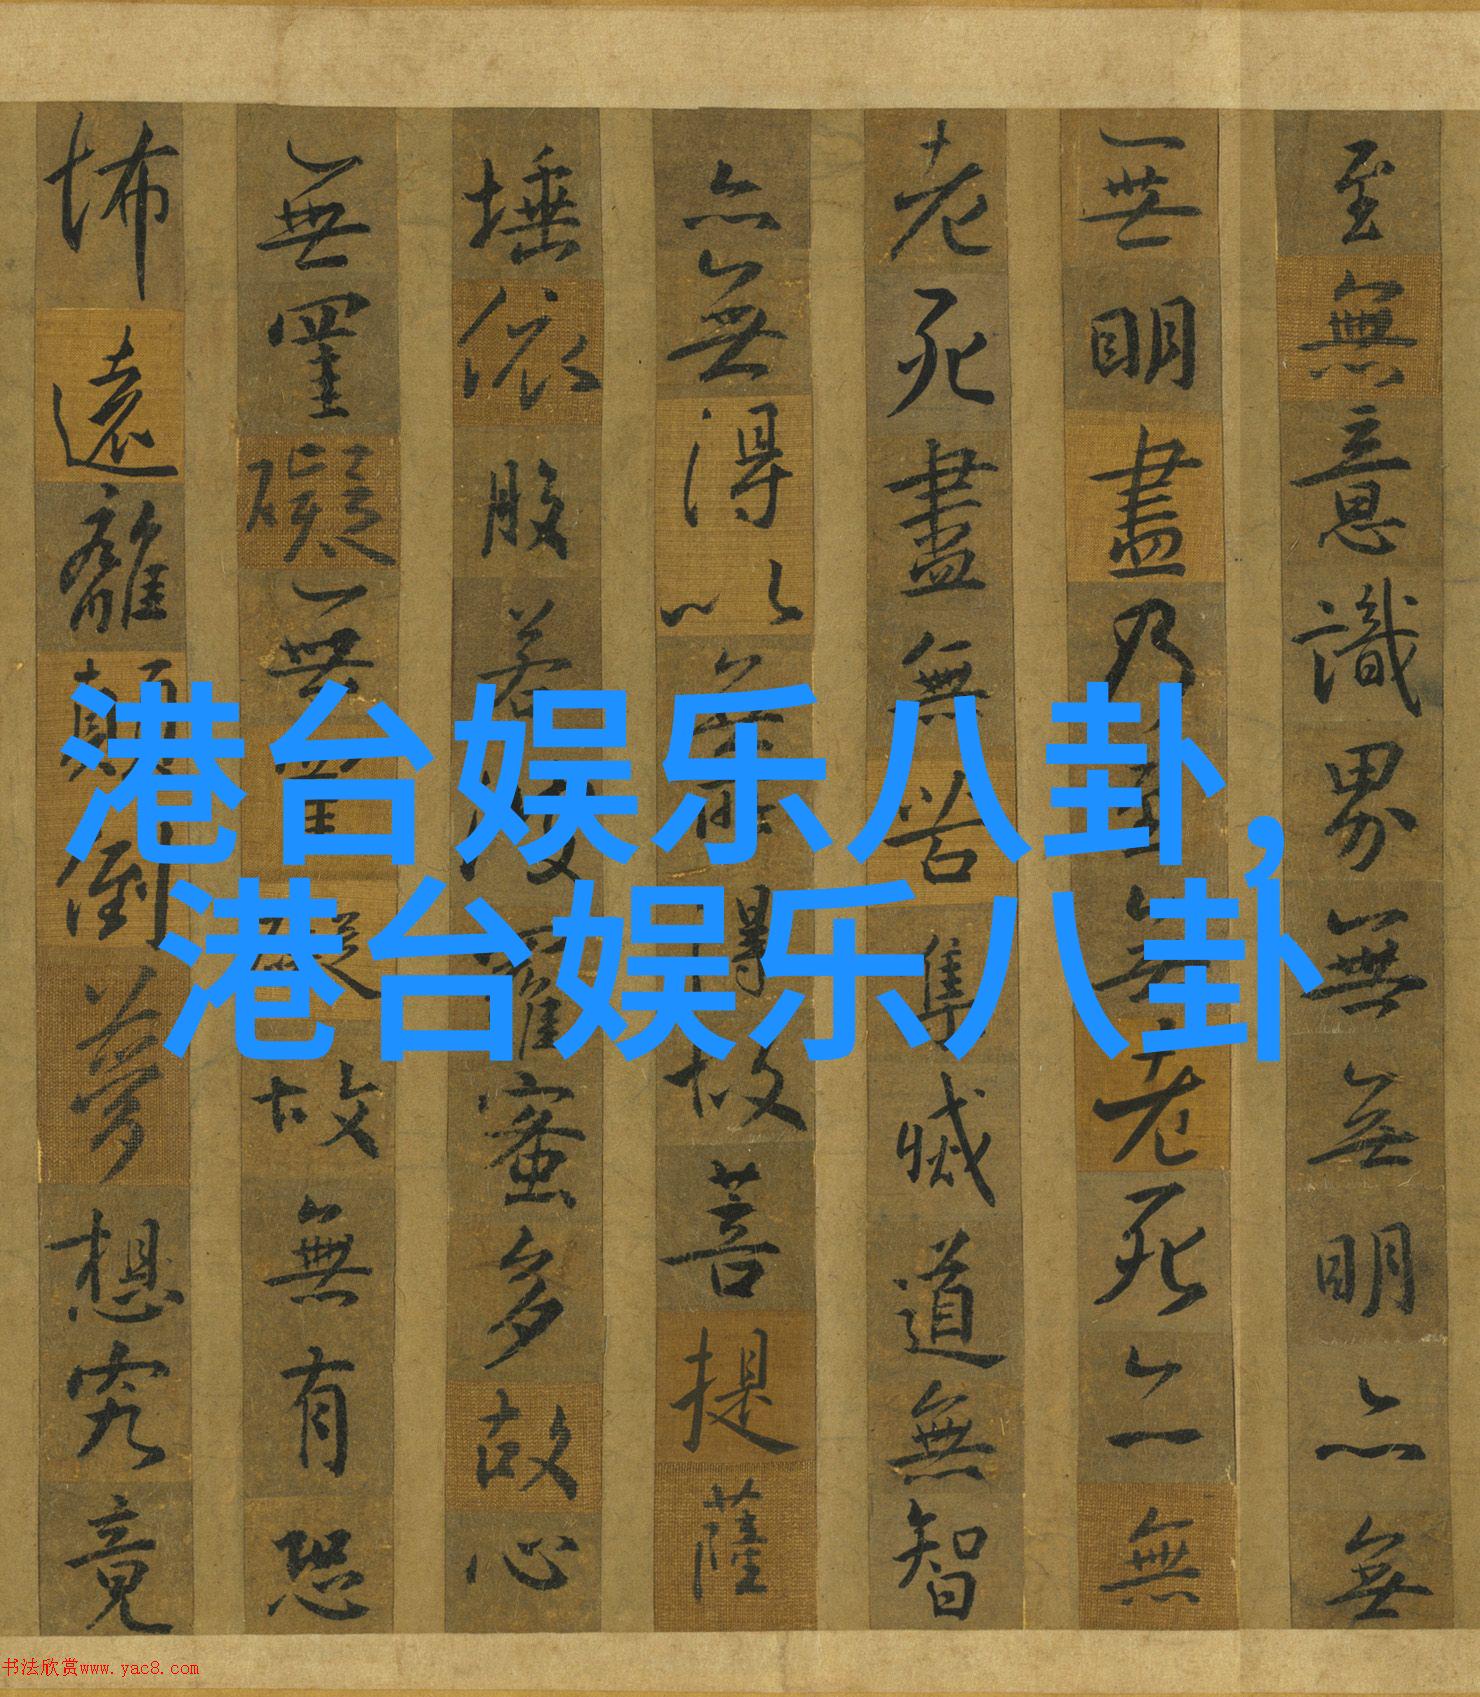 至無意識界無無明亦無
無明盡乃至無老死亦無
老死盡無苦集滅道無智
亦無得以無所得故菩提薩
埵依般若波羅蜜多故心
無罣礙無罣礙故無有恐
怖遠離顛倒夢想究竟
港台娱乐八卦,
港台娱乐八卦
书法欣赏www.yac8.com